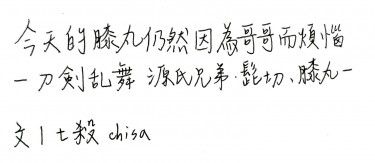 今天的膝丸仍然因為哥哥而煩惱
一刀剣乱舞 源氏兄弟·髭切、膝丸一
文|七殺 chisa